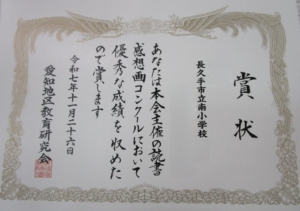 賞状
長久手市立南小学校
あなたは本会主催の読書
感想画コンクールにおいて
優秀な成績を収めた
ので賞します
令和七年十一月二十六日
愛知地区教育研究会